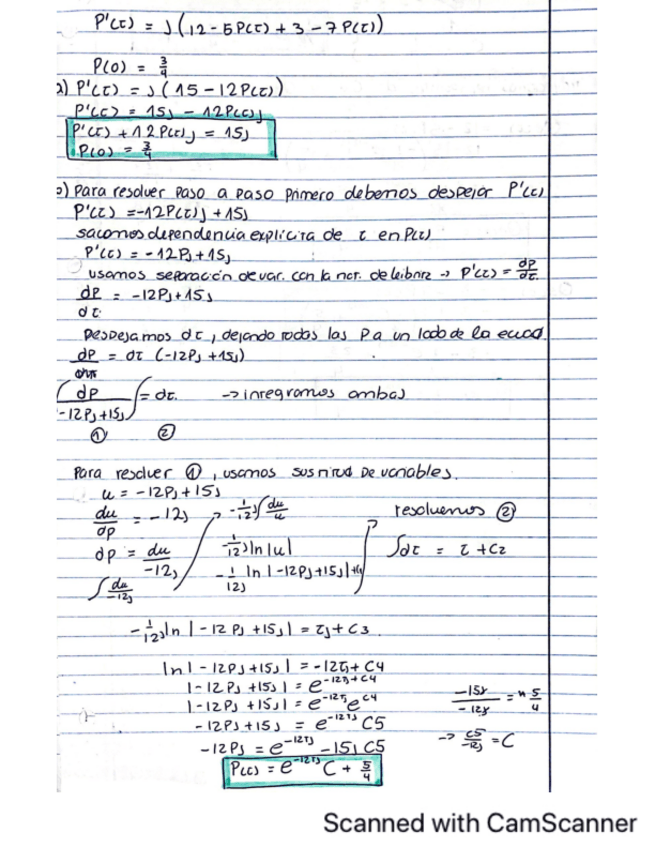 P'(t) = j(12-5P(t) + 3-7P(t))
P(0) = 3/4
a) P'(t) = j(15-12P(t))
P'(t) = 15j - 12P(t)j
P'(t) + 12P(t)j = 15j
P(0) = 3/4
Para resolver paso a paso primero debemos despejar P'(t)
P'(t) = -12P(t)j + 15j
sacamos dependencia explicita de t en P(t)
P'(t) = -12Pj + 15j
usamos separación de var. con la not. de leibniz → P'(t) = dp/dt
dP/dt = -12Pj + 15j
Despejamos dt, dejando todos las P a un lado de la ecuad.
dP = dt (-12Pj + 15j)
∫ dP/-12Pj+15j ∫ = dt. → integramos ambas
① ②
Para resolver ①, usamos sustitud de variables.
u = -12Pj + 15j
du/dp = -12j
dp = du/-12j
∫ du/-12j
-1/12j ∫ du/u
-1/12j ln|u|
-1/12j ln|-12Pj+15j|+C1
resolvemos ②
∫dt = t + C2
-1/12j ln|-12Pj+15j| = tj + C3
ln|-12Pj+15j| = -12tj + C4
|-12Pj+15j| = e^-12tj+C4
|-12Pj+15j| = e^-12tj e^C4
-12Pj+15j = e^-12tj C5
-12Pj = e^-12tj -15j C5
P(t) = e^-12tj C + 5/4
-15j/-12j = 5/4
→ C5/-12j = C
Scanned with CamScanner